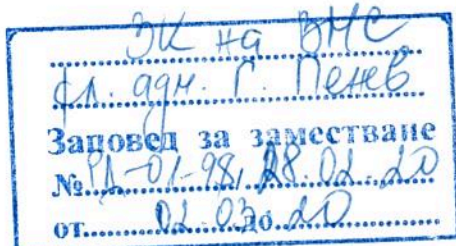 ЗК на ВМС
фл. адм. Г. Пенев
Заповед за заместване
№ РД-01-98, 28.02.20
от 02.03 до 20